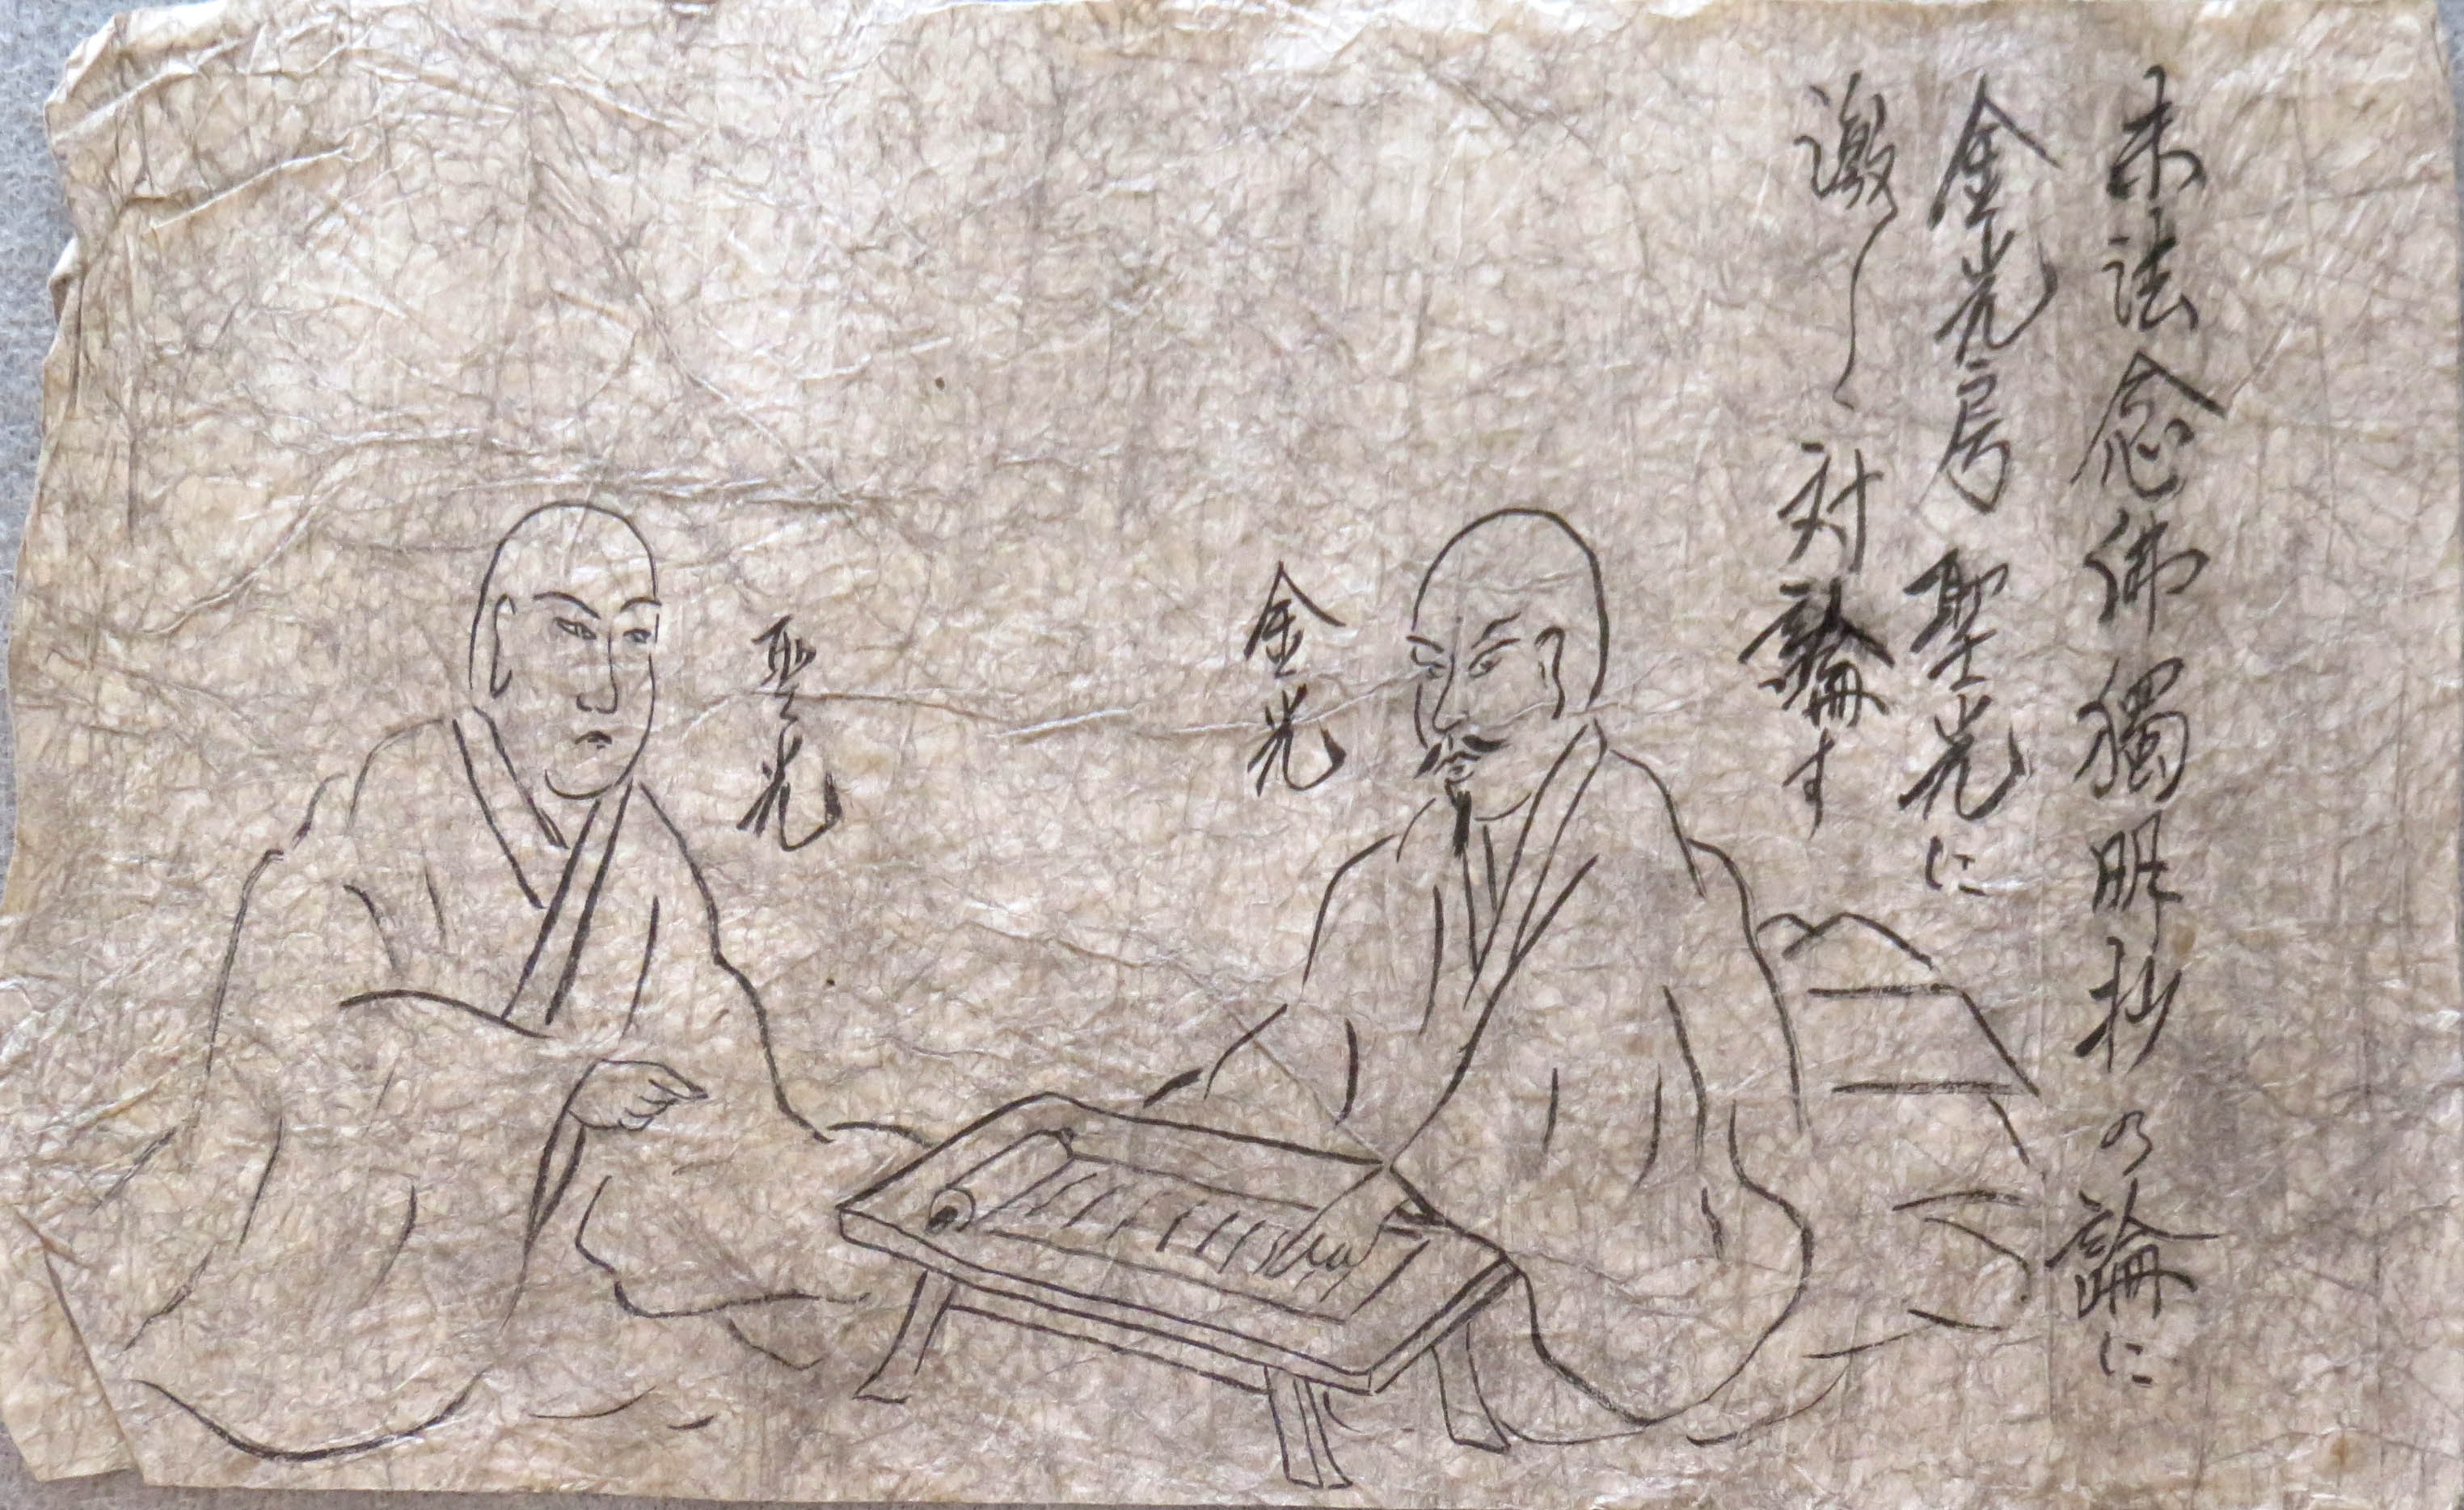 末法念佛獨明抄の論に
金光房聖光に
激〳〵対論す
金光
聖光